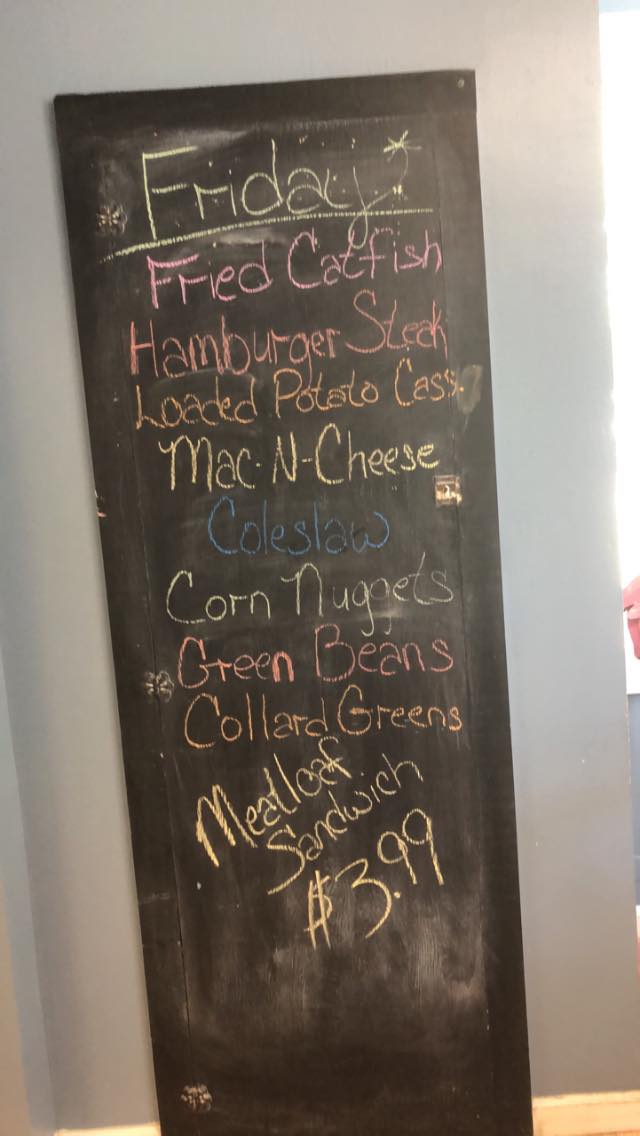 Friday*
Fried Catfish
Hamburger Steak
Loaded Potato Cass.
Mac-N-Cheese
Coleslaw
Corn Nuggets
Green Beans
Collard Greens
Meatloaf
Sandwich
$3.99